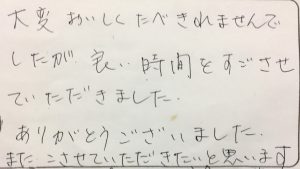 大変おいしくたべきれませんで
したが、良い時間をすごさせ
ていただきました.
ありがとうございました.
またこさせていただきたいと思います